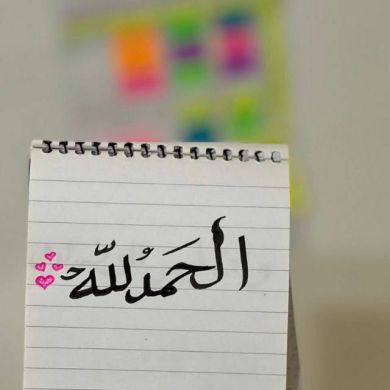 الحَمدُللّه